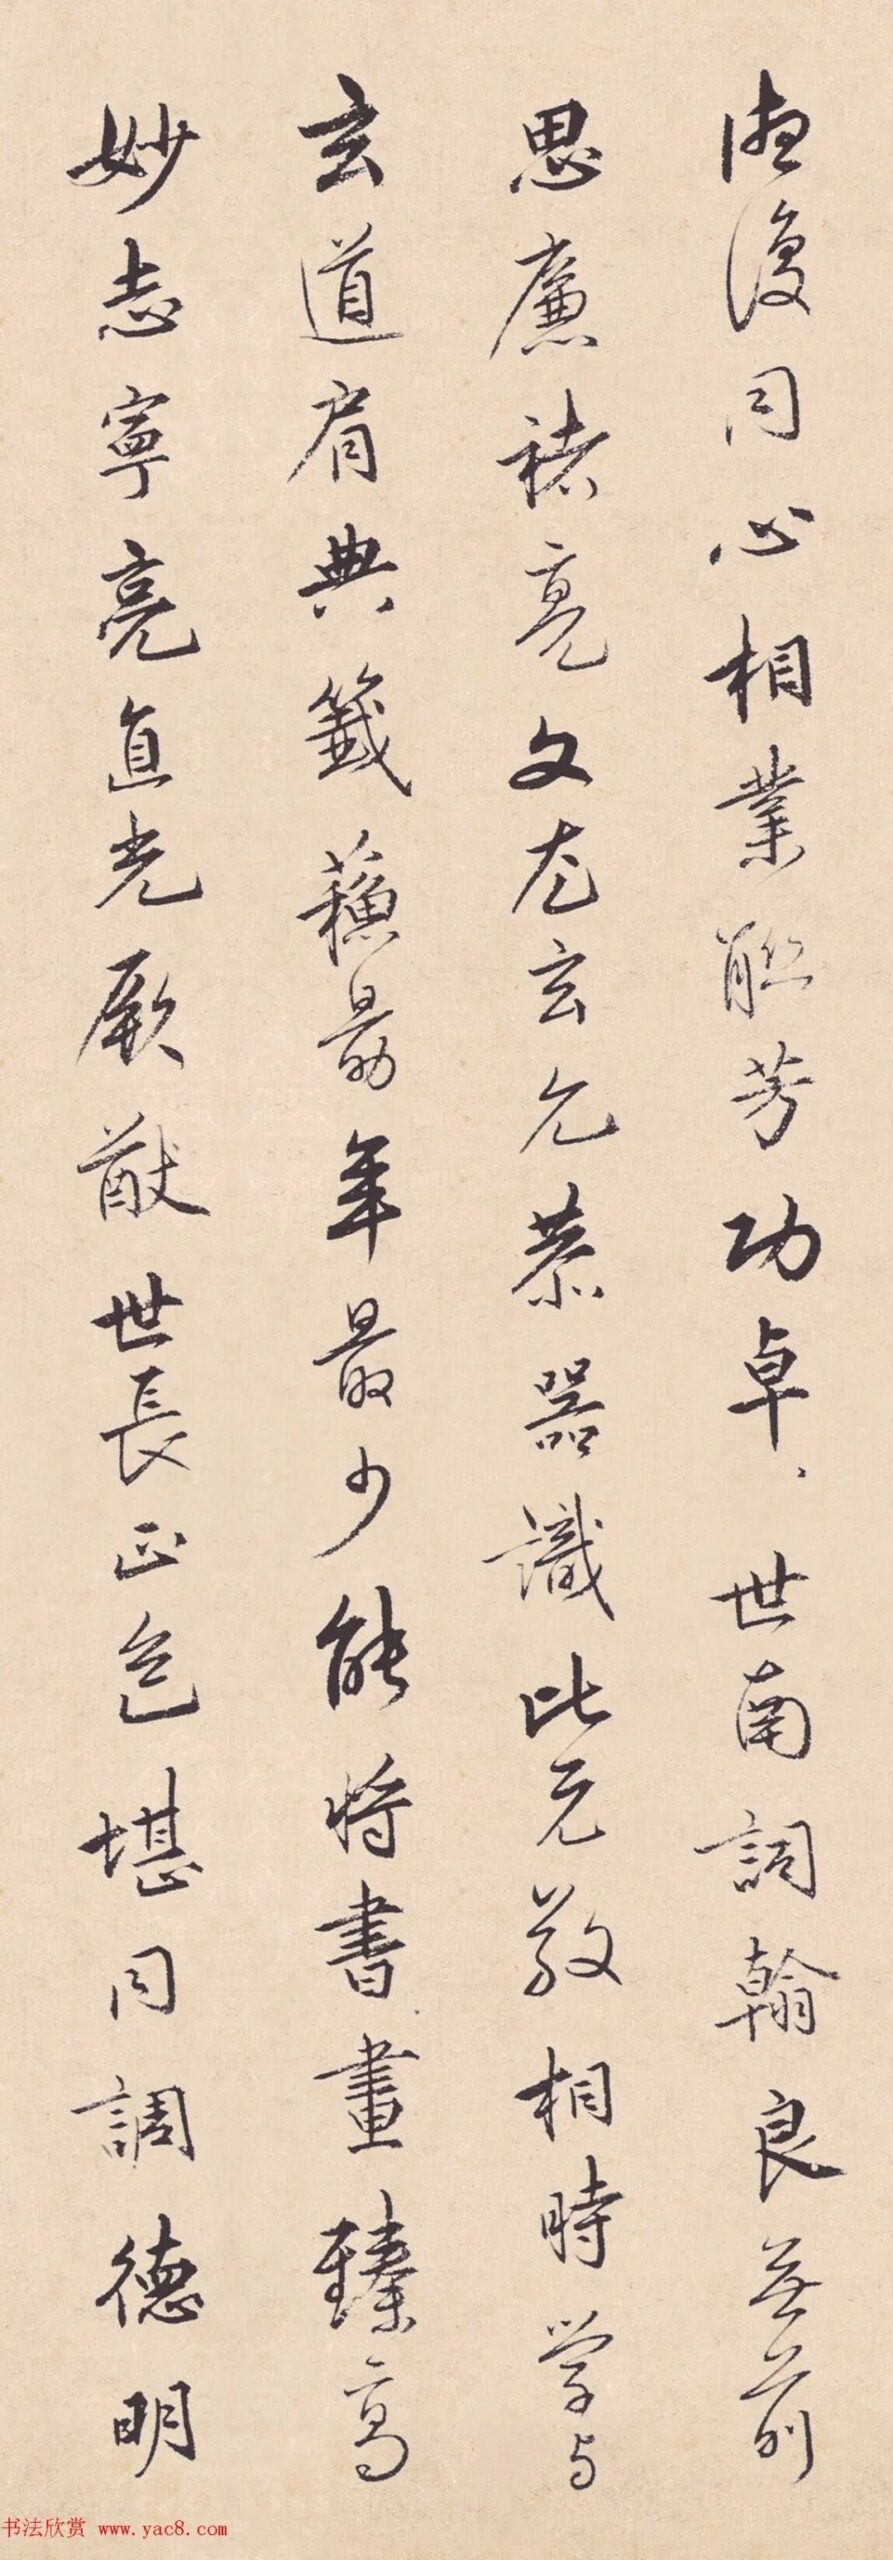 德復同心相業聯芳功卓卓世南詞翰良無前
思廉褚亮文尤玄允恭器識比元敬相時学与
玄道肩典籤蘇勗年最少能将書畫臻高
妙志寧亮直光厥猷世長正色堪同調德明
书法欣赏 www.yac8.com